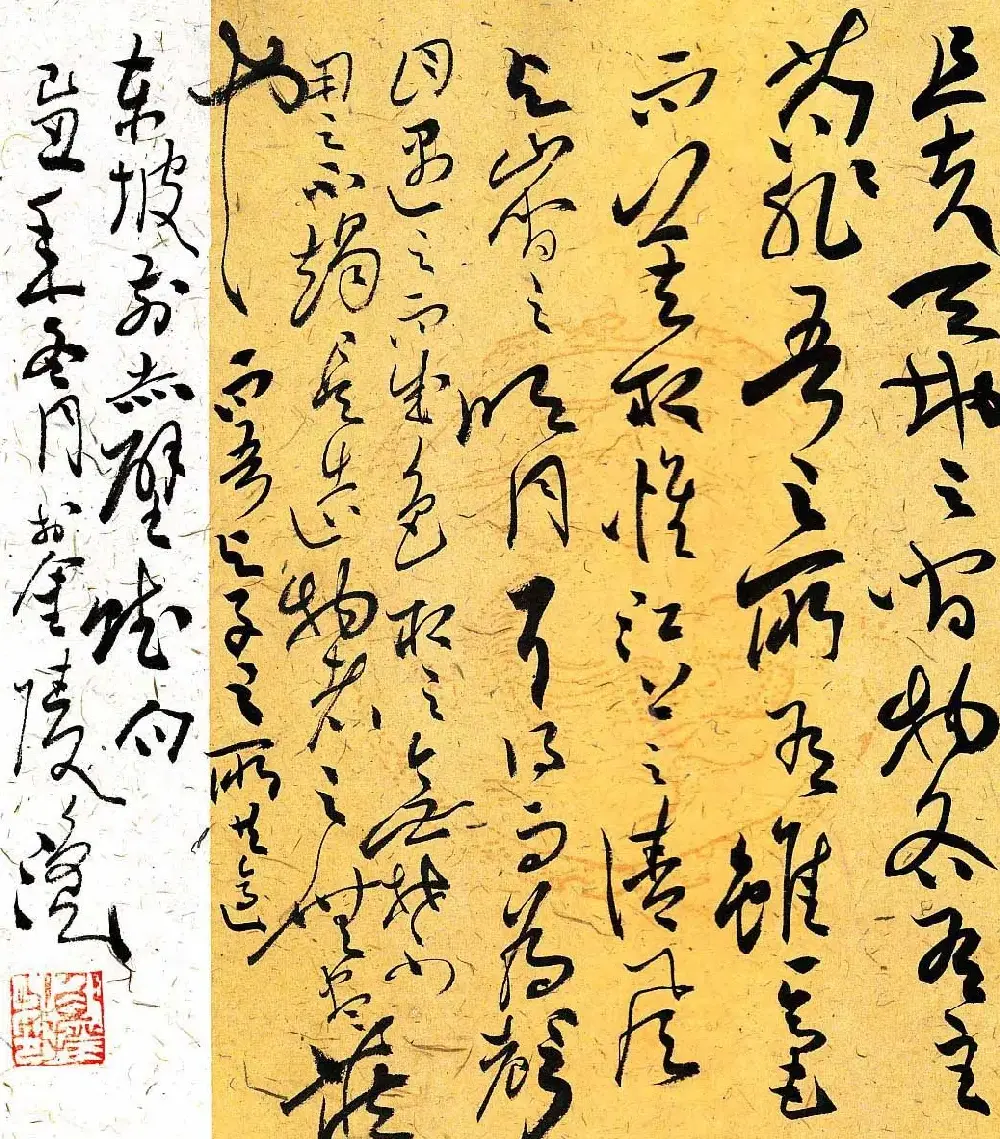 且夫天地之間物各有主
苟非吾之所有雖一毫
而莫取惟江上之清風
与山間之明月耳得而為聲
目遇之而成色取之無禁
用之不竭是造物者之無盡藏
也 而吾与子之所共適
東坡前赤壁賦句
己丑年冬月於金陵